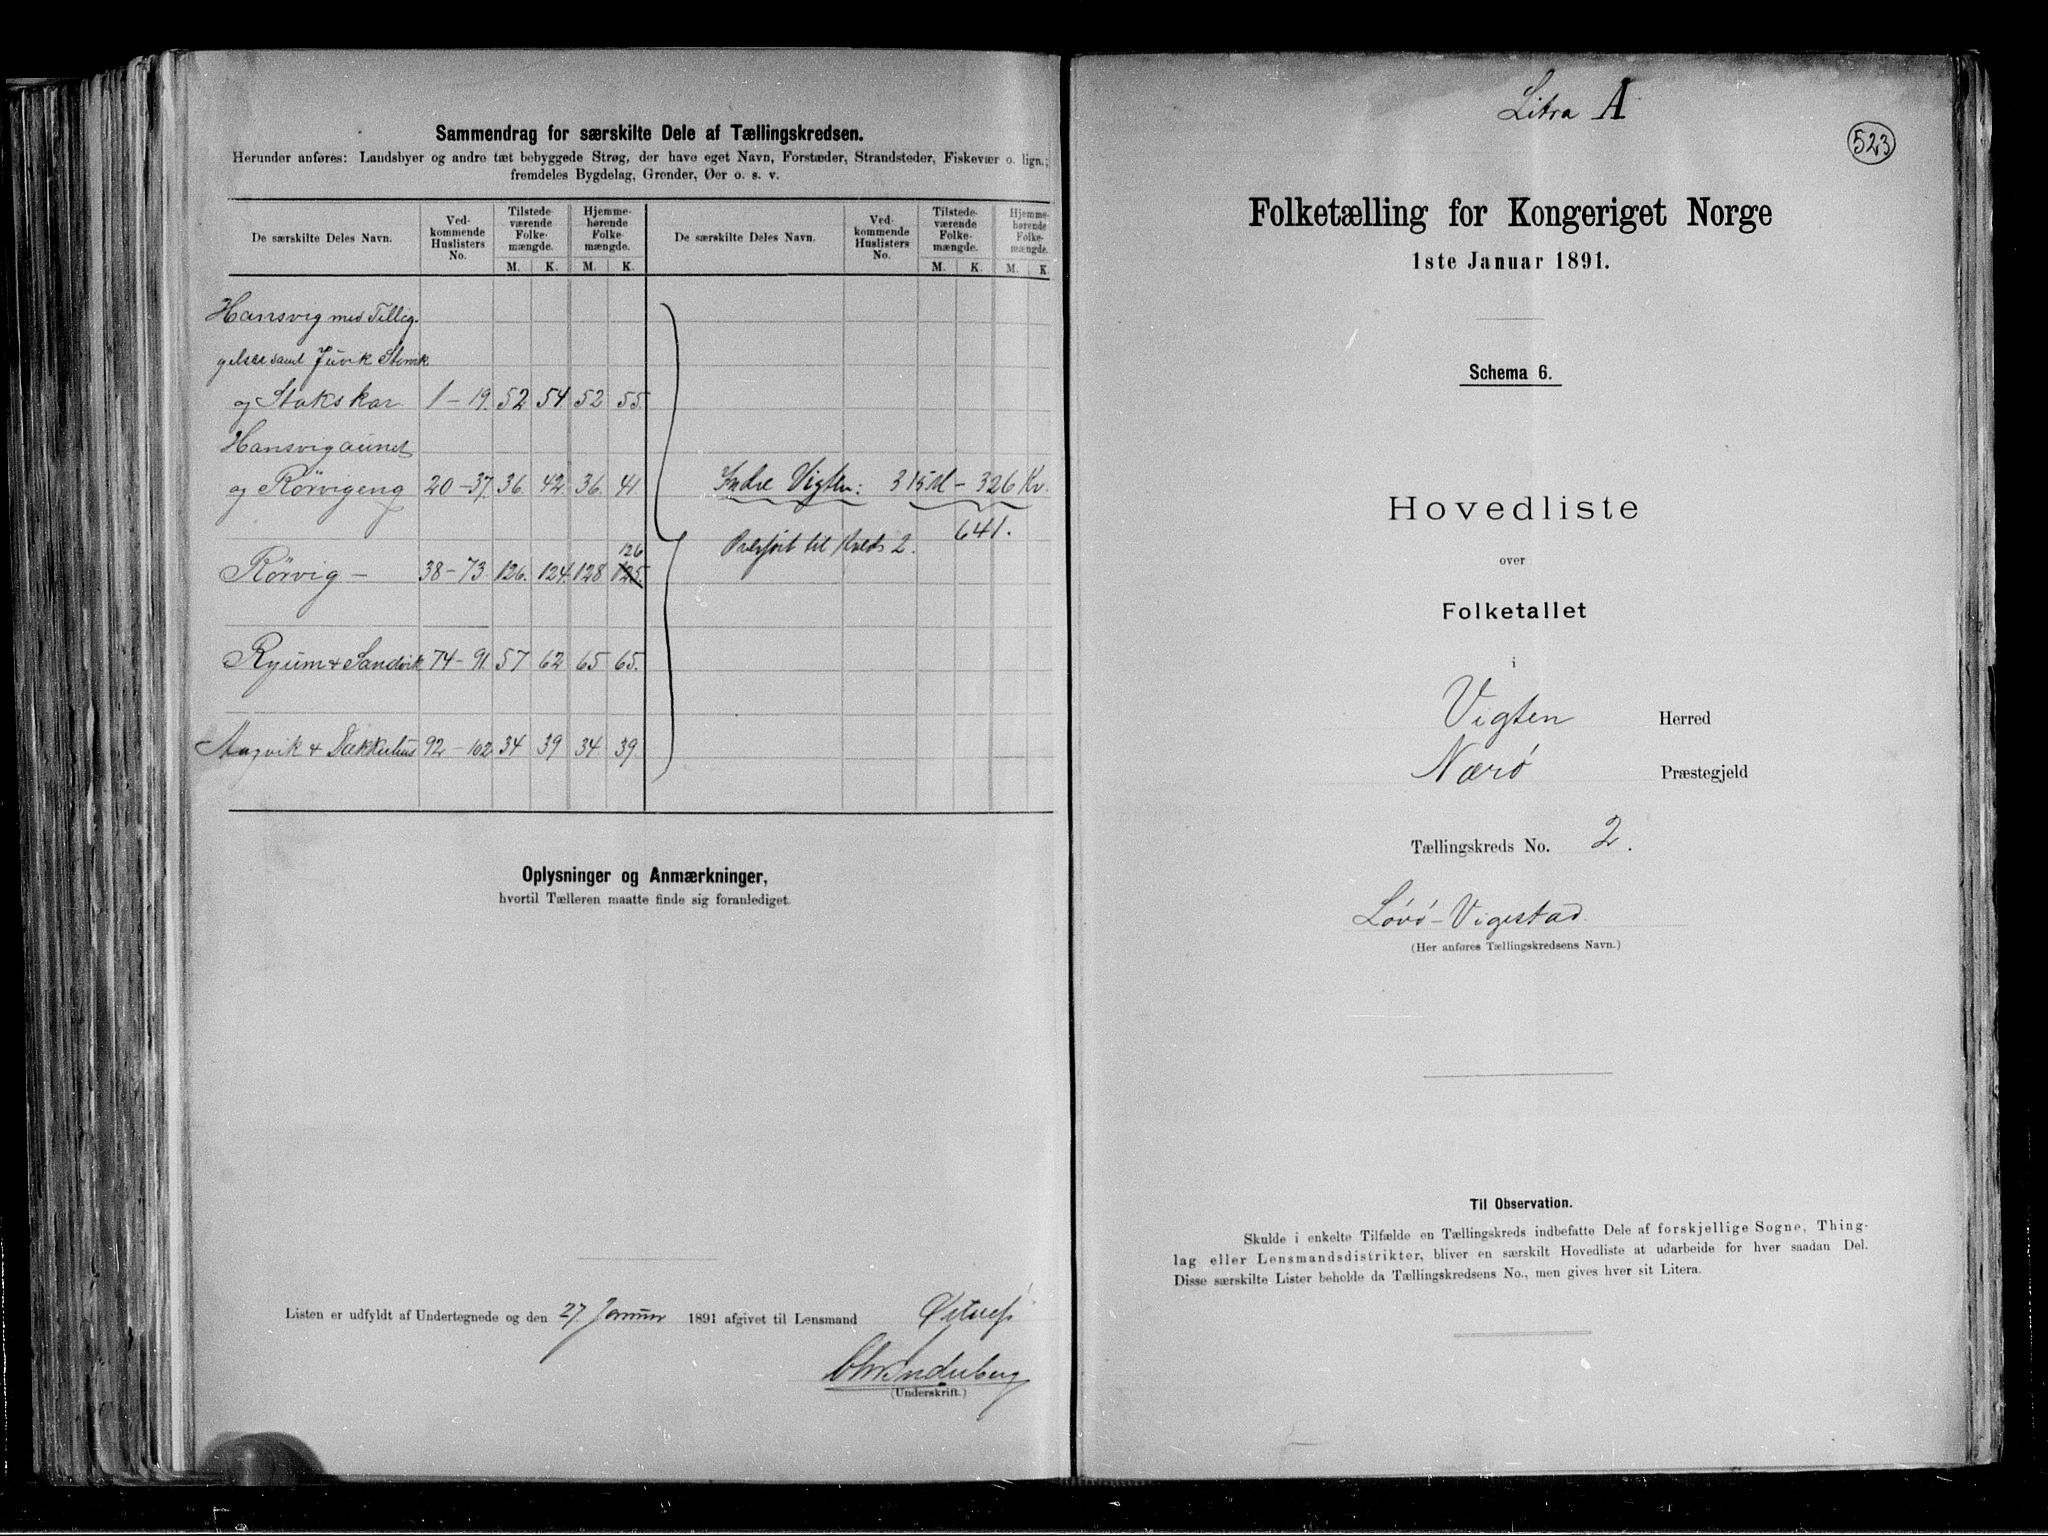 Sammendrag for særskilte Dele af Tællingskredsen.
Herunder anføres: Landsbyer og andre tæt bebyggede Strøg, der have eget Navn, Forstæder, Strandsteder, Fiskevær o. lign.;
fremdeles Bygdelag, Grender, Øer o. s. v.
De særskilte Deles Navn. Ved-kommende Huslisters No. Tilstede-værende Folke-mængde. Hjemme-hørende Folke-mængde. De særskilte Deles Navn. Ved-kommende Huslisters No. Tilstede-værende Folke-mængde. Hjemme-hørende Folke-mængde.
M. K. M. K. M. K. M. K.
Hansvig med Tillig-
gelser samt Juvik
og Stokskar 1 – 19. 52 54. 52 55.
Hansvigaunet
og Rørvigeng 20 – 37. 36. 42. 36. 41
Indre Vigten: 315 M – 326 Kv.
641.
Overført til Kreds 2.
126
Rørvig – 38 – 73. 126. 124. 128 125.
Ryum & Sandvik 74 – 91. 57 62 65 65.
& Dækkerhus 92 – 102. 34 39 34 39.
Oplysninger og Anmærkninger,
hvortil Tælleren maatte finde sig foranlediget.
Listen er udfyldt af Undertegnede og den 27. Januar 1891 afgivet til Lensmand
(Underskrift.)
Litra A
523
Folketælling for Kongeriget Norge
1ste Januar 1891.
Schema 6.
Hovedliste
over
Folketallet
i
Vigten Herred
Nærø Præstegjeld
Tællingskreds No. 2.
Løvø-Vigestad.
(Her anføres Tællingskredsens Navn.)
Til Observation.
Skulde i enkelte Tilfælde en Tællingskreds indbefatte Dele af forskjellige Sogne, Thing-
lag eller Lensmandsdistrikter, bliver en særskilt Hovedliste at udarbeide for hver saadan Del.
Disse særskilte Lister beholde da Tællingskredsens No., men gives hver sit Litera.